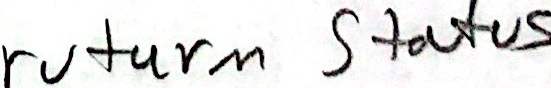 ruturn Status